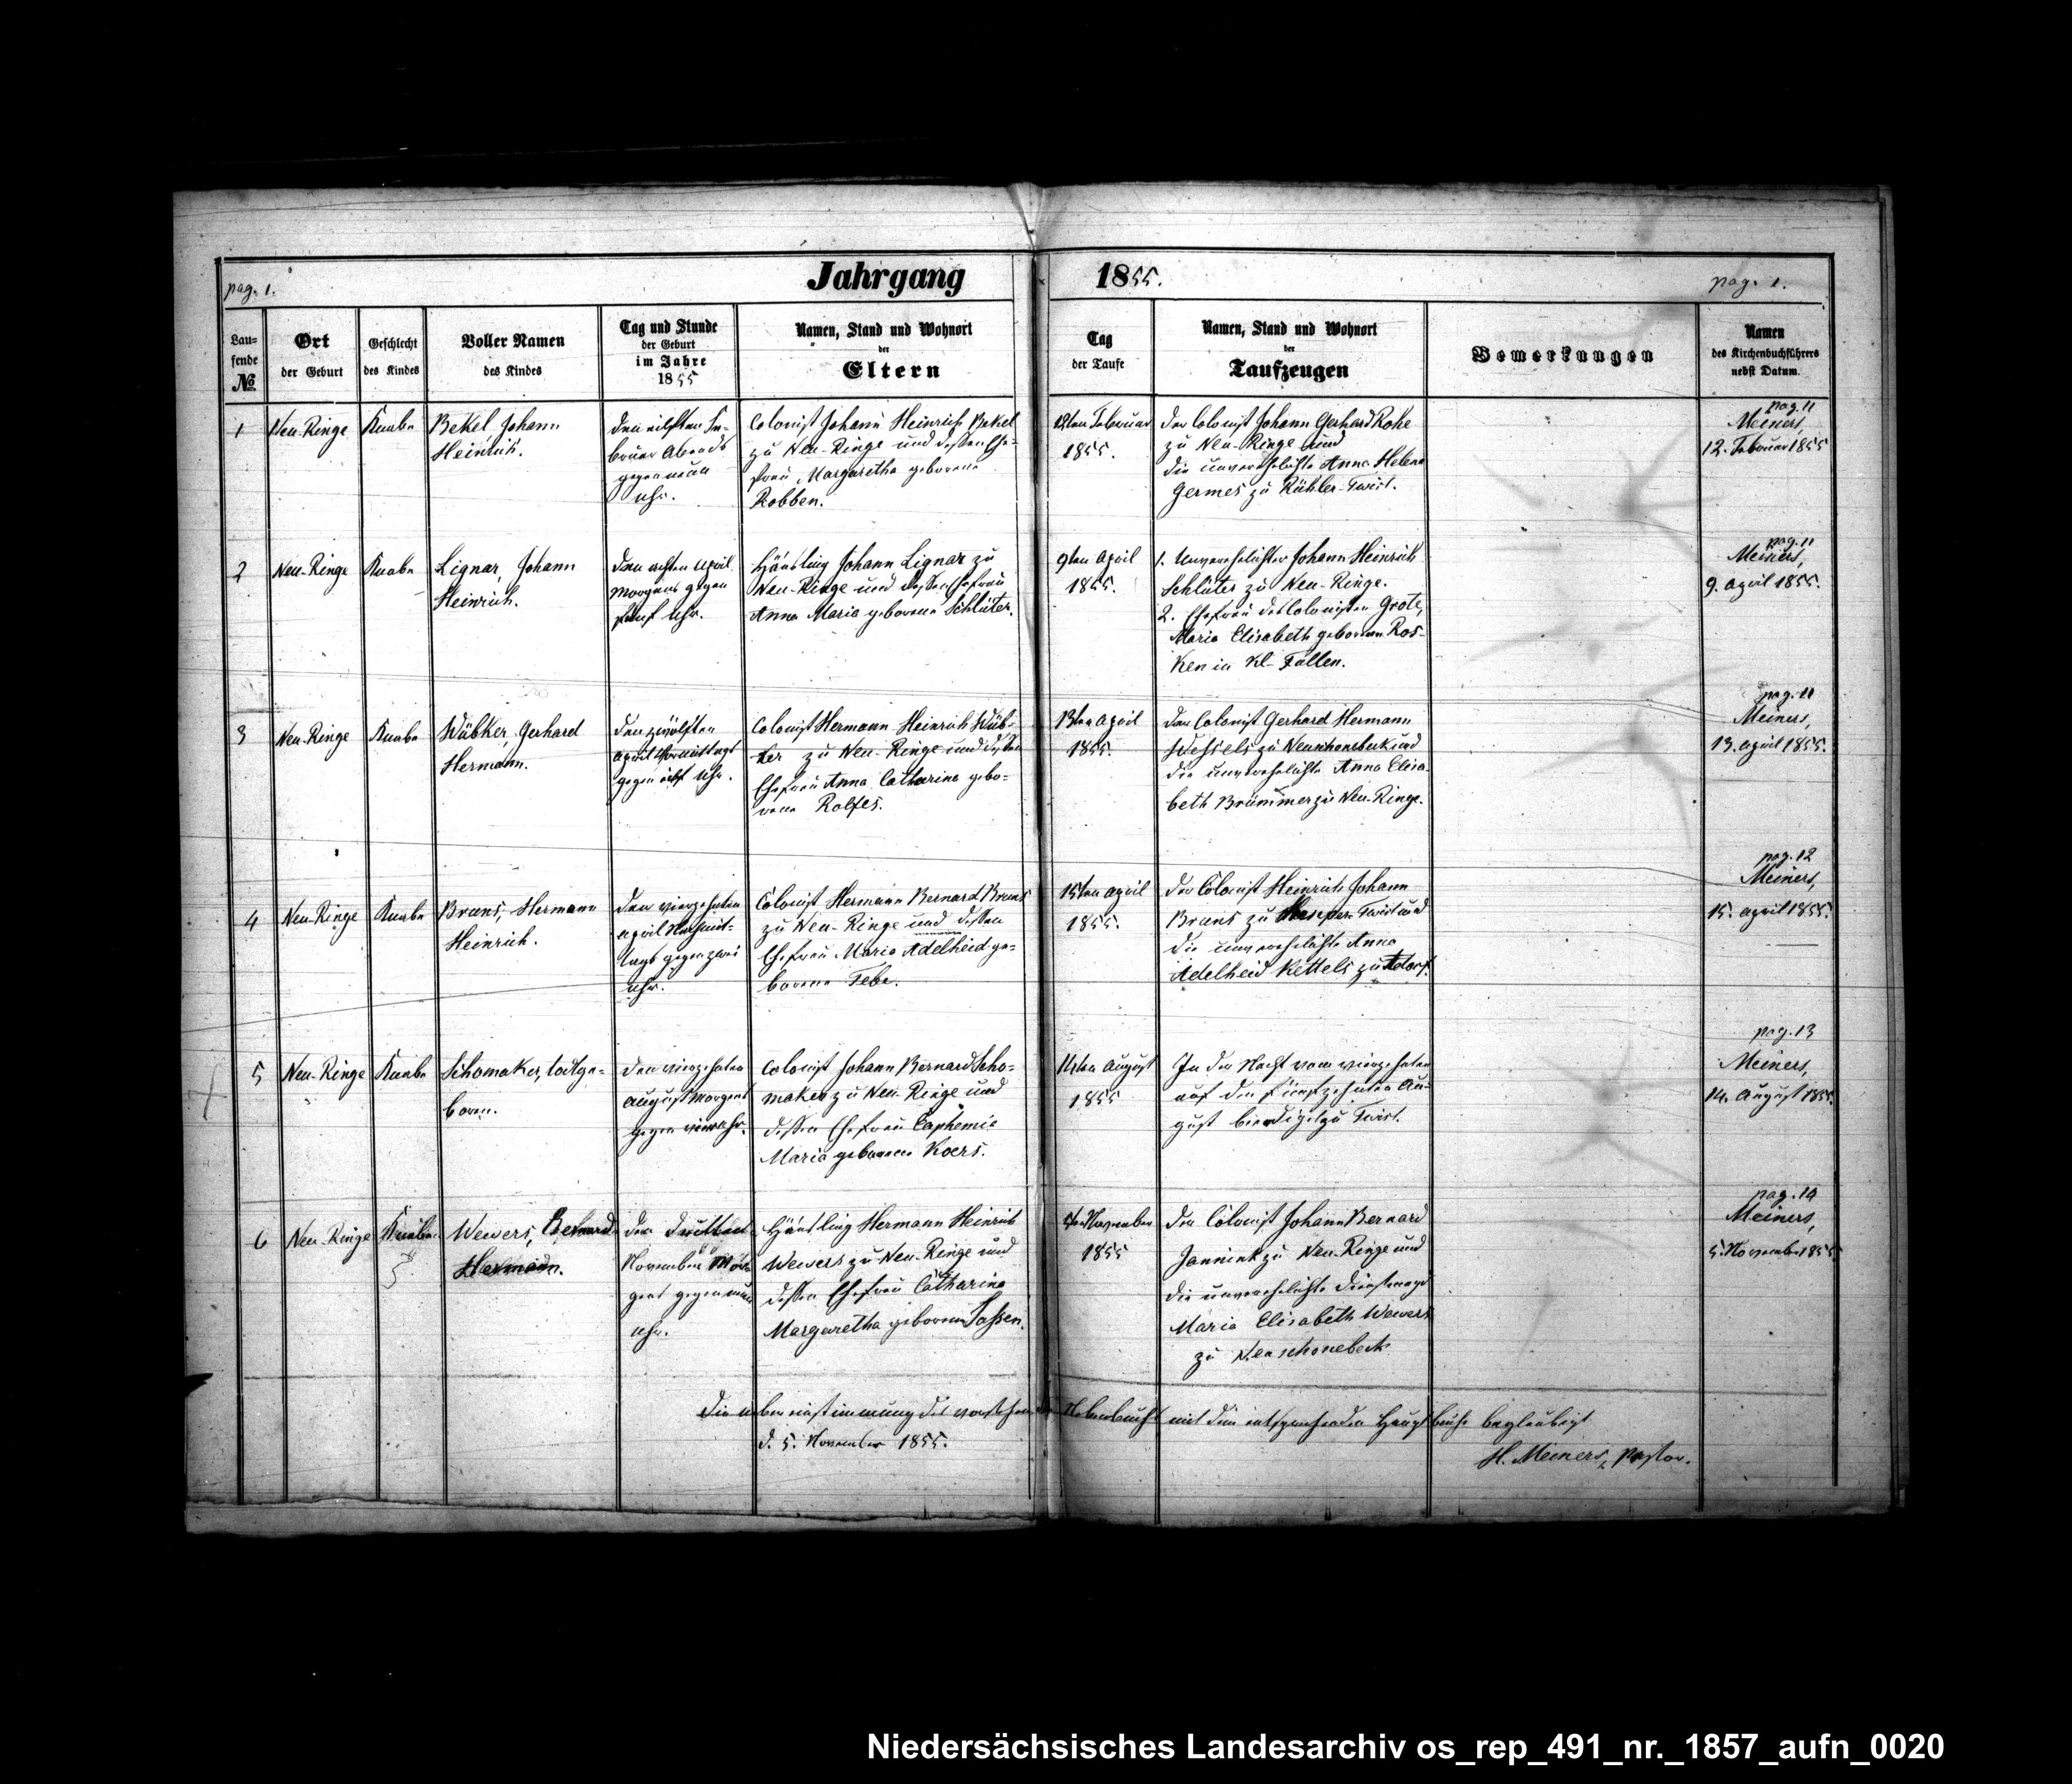 pag. 1.
Jahrgang 1855.
pag. 1.
Laufende
№
Ort
der Geburt
Geschlecht
des Kindes
Voller Namen
des Kindes
Tag und Stunde
der Geburt
im Jahre
1855
Namen, Stand und Wohnort
der
Eltern
Tag
der Taufe
Namen, Stand und Wohnort
der
Taufzeugen
Bemerkungen
Namen
des Kirchenbuchführers
nebst Datum.
1
Neu-Ringe
Knabe
Bekel Johann
Heinrich.
den eilften Fe-
bruar Abends
gegen neun
Uhr.
Colonist Johann Heinrich Bekel
zu Neu-Ringe und dessen Ehe-
frau, Margaretha geborene
Robben.
12ten Februar
1855.
der Colonist Johann Gerhard Rohe
zu Neu-Ringe und
die unverehelichte Anna Helena
Germes zu Rühler-Twist.
pag. 11
Meiners,
12. Februar 1855
2
Neu-Ringe
Knabe
Lignar, Johann
Heinrich.
den achten April
Morgens gegen
fünf Uhr.
Häusling Johann Lignar zu
Neu-Ringe und dessen Ehefrau
Anna Maria geborene Schlüter.
9ten April
1855.
1. Unverehelichter Johann Heinrich
Schlüter zu Neu-Ringe.
2. Ehefrau des Colonisten Grote,
Maria Elisabeth geborene Ros-
ken in Kl-Fullen.
pag. 11
Meiners,
9. April 1855.
3
Neu-Ringe
Knabe
Wübker, Gerhard
Hermann.
den zwölften
April Vormittags
gegen acht Uhr.
Colonist Hermann Heinrich Wüb-
ker zu Neu-Ringe und dessen
Ehefrau Anna Catharina gebo-
rene Rolfes.
13ten April
1855.
der Colonist Gerhard Hermann
Wessels zu Neuschonebeck und
die unverehelichte Anna Elisa-
beth Brümmer zu Neu-Ringe.
pag. 11
Meiners,
13. April 1855.
4
Neu-Ringe
Knabe
Bruns, Hermann
Heinrich.
den vierzehnten
April Nachmit-
tags gegen zwei
Uhr.
Colonist Hermann Bernard Bruns
zu Neu-Ringe und dessen
Ehefrau Maria Adelheid ge-
borene Tebe.
15ten April
1855.
der Colonist Heinrich Johann
Bruns zu Heseper-Twist und
die unverehelichte Anna
Adelheid Kettels zu Adorf.
pag. 12
Meiners,
15. April 1855.
5
Neu-Ringe
Knabe
Schomaker, todtge-
boren.
den vierzehnten
August Morgens
gegen vier Uhr.
Colonist Johann Bernard Scho-
maker zu Neu-Ringe und
dessen Ehefrau Euphemia
Maria geborenen Koers.
14ten August
1855
In der Nacht vom vierzehnten
auf den fünfzehnten Au-
gust beerdigt zu Twist.
pag. 13
Meiners,
14. August 1855.
6
Neu-Ringe
Knabe
Wewers, Gerhard
Hermann.
den dritten
November Mor-
gens gegen neun
Uhr.
Häusling Hermann Heinrich
Wewers zu Neu-Ringe und
dessen Ehefrau Catharina
Margaretha geborene Sassen.
5ten November
1855
der Colonist Johann Bernard
Jannink zu Neu-Ringe und
die unverehelichte Dienstmagd
Maria Elisabeth Wewers
zu Neuschonebeck
pag. 14
Meiners,
5. November 1855
Die Uebereinstimmung des vorstehenden Nebenbuchs mit dem entsprechenden Hauptbuche beglaubigt
d. 5. November 1855.
H. Meiners, Pastor.
Niedersächsisches Landesarchiv os_rep_491_nr._1857_aufn_0020